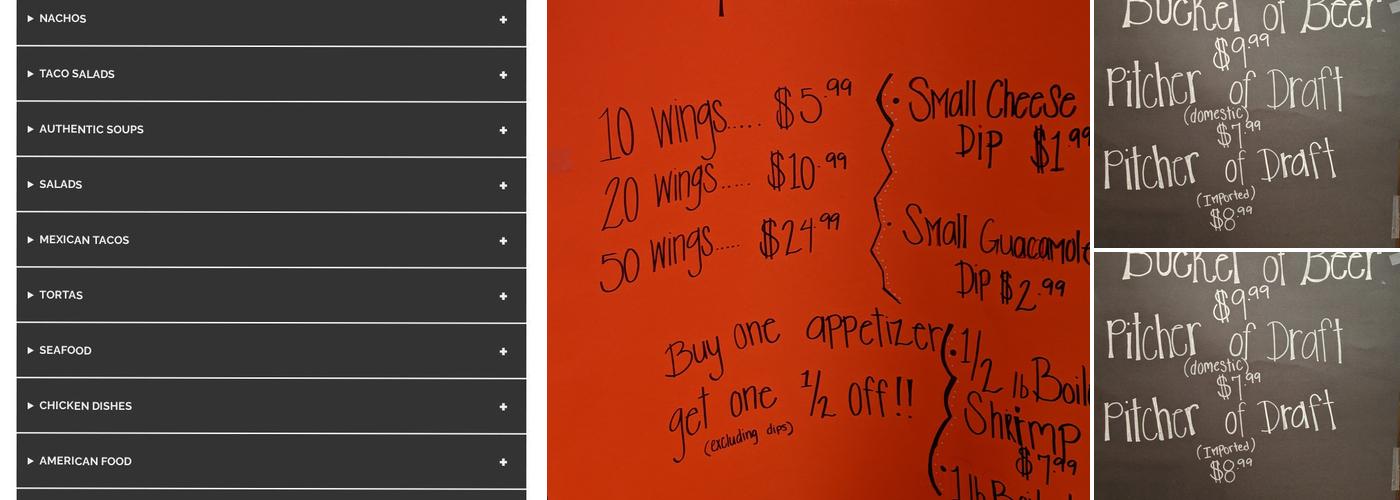 NACHOS
TACO SALADS
AUTHENTIC SOUPS
SALADS
MEXICAN TACOS
TORTAS
SEAFOOD
CHICKEN DISHES
AMERICAN FOOD
10 wings..... $5.99
20 wings..... $10.99
50 wings..... $24.99
Buy one appetizer
get one 1/2 off!!
(excluding dips)
• Small Cheese
Dip $1.99
• Small Guacamole
Dip $2.99
• 1/2 lb Boil
Shrimp
$7.99
• 1 lb
Bucket of Beer
$9.99
Pitcher of Draft
(domestic)
$7.99
Pitcher of Draft
(Imported)
$8.99
Bucket of Beer
$9.99
Pitcher of Draft
(domestic)
$7.99
Pitcher of Draft
(Imported)
$8.99